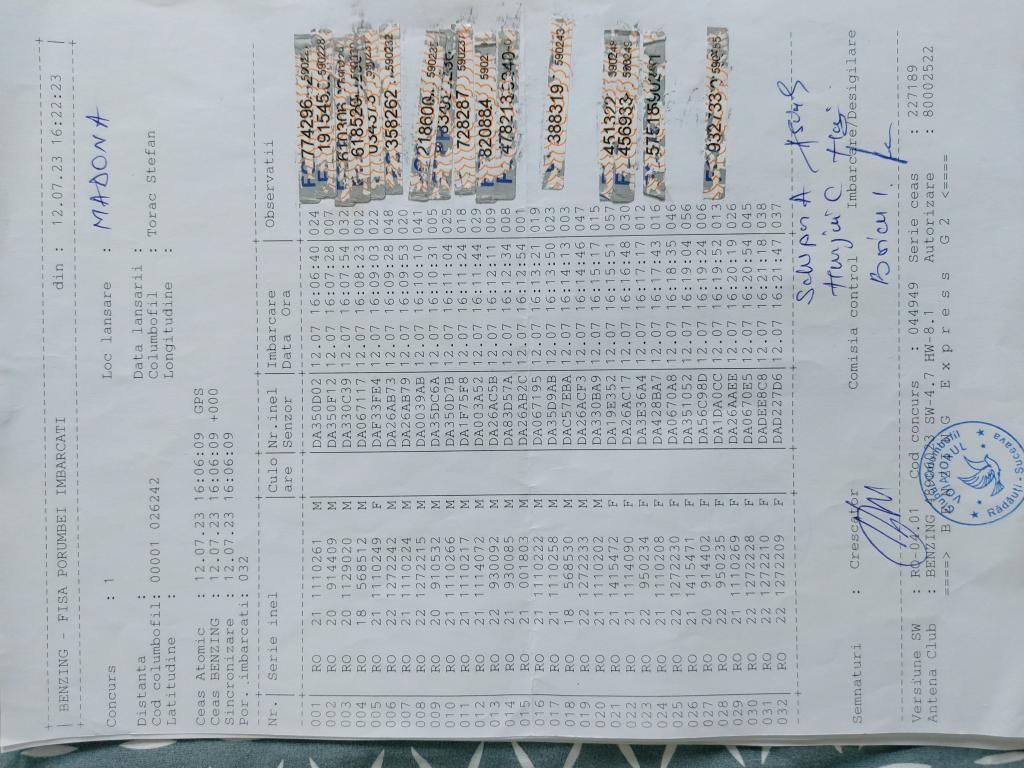 BENZING - FISA PORUMBEI IMBARCATI din : 12.07.23 16:22:23
Concurs : 1 Loc lansare : MADONA
Distanta : Data lansarii :
Cod columbofil: 000001 026242 Columbofil : Torac Stefan
Latitudine : Longitudine :
Ceas Atomic : 12.07.23 16:06:09 GPS
Ceas BENZING : 12.07.23 16:06:09 +000
Sincronizare : 12.07.23 16:06:09
Por.imbarcati: 032
Nr. Serie inel Culo Nr.inel Imbarcare Observatii
are Senzor Data Ora
001 RO 21 1110261 M DA350D02 12.07 16:06:40 024 774296
002 RO 20 914409 M DA350F12 12.07 16:07:28 007 191545
003 RO 20 1129020 M DA330C39 12.07 16:07:54 032
004 RO 18 568512 M DA067117 12.07 16:08:23 002 618520
005 RO 21 1110249 F DAF33FE4 12.07 16:09:03 022
006 RO 22 1272242 M DA26AB73 12.07 16:09:28 048 358262 590232
007 RO 21 1110224 M DA26AB79 12.07 16:09:53 020
008 RO 22 1272215 M DA0039AB 12.07 16:10:10 041 218600
009 RO 20 910532 M DA35DC6A 12.07 16:10:31 005
010 RO 21 1110266 M DA350D7B 12.07 16:11:01 025
011 RO 21 1110217 M DA1F75F8 12.07 16:11:24 018 728287
012 RO 21 1114072 M DA003A52 12.07 16:11:44 029
013 RO 22 930092 M DA26AC5B 12.07 16:12:11 009 820884
014 RO 21 930085 M DA83D57A 12.07 16:12:34 008
015 RO 22 001803 M DA26AB2C 12.07 16:12:54 001
016 RO 21 1110222 M DA067195 12.07 16:13:21 019
017 RO 21 1110258 M DA35D9AB 12.07 16:13:50 023 388319 590243
018 RO 18 568530 M DAC57EBA 12.07 16:14:13 003
019 RO 22 1272233 M DA26ACF3 12.07 16:14:46 047
020 RO 21 1110202 M DA330BA9 12.07 16:15:17 015
021 RO 21 1415472 F DA19E352 12.07 16:15:51 057 451322
022 RO 21 1114090 F DA26AC17 12.07 16:16:48 030 456933
023 RO 22 950234 F DA3E36A4 12.07 16:17:17 012
024 RO 21 1110208 F DA428BA7 12.07 16:17:43 016
025 RO 22 1272230 F DA0670A8 12.07 16:18:35 046
026 RO 21 1415471 F DA351052 12.07 16:19:04 058
027 RO 20 914402 F DA56C98D 12.07 16:19:24 006 932733
028 RO 22 950235 F DA1DA0CC 12.07 16:19:52 013
029 RO 21 1110269 F DA26AAEE 12.07 16:20:19 026
030 RO 22 1272228 F DA0670E5 12.07 16:20:54 045
031 RO 22 1272210 F DADEE8C8 12.07 16:21:18 038
032 RO 22 1272209 F DAD227D6 12.07 16:21:47 037
Semnaturi : Crescator Comisia control Imbarcare/Desigilare
Versiune SW : RO-04.01 Cod concurs : 044949 Serie ceas : 227189
Antena Club : BENZING SW-4.7 HW-8.1 Autorizare : 80002522
====> BENZING Express G2 <====
Clubul Columbofil
VOIAJORUL
Rădăuți - Suceava